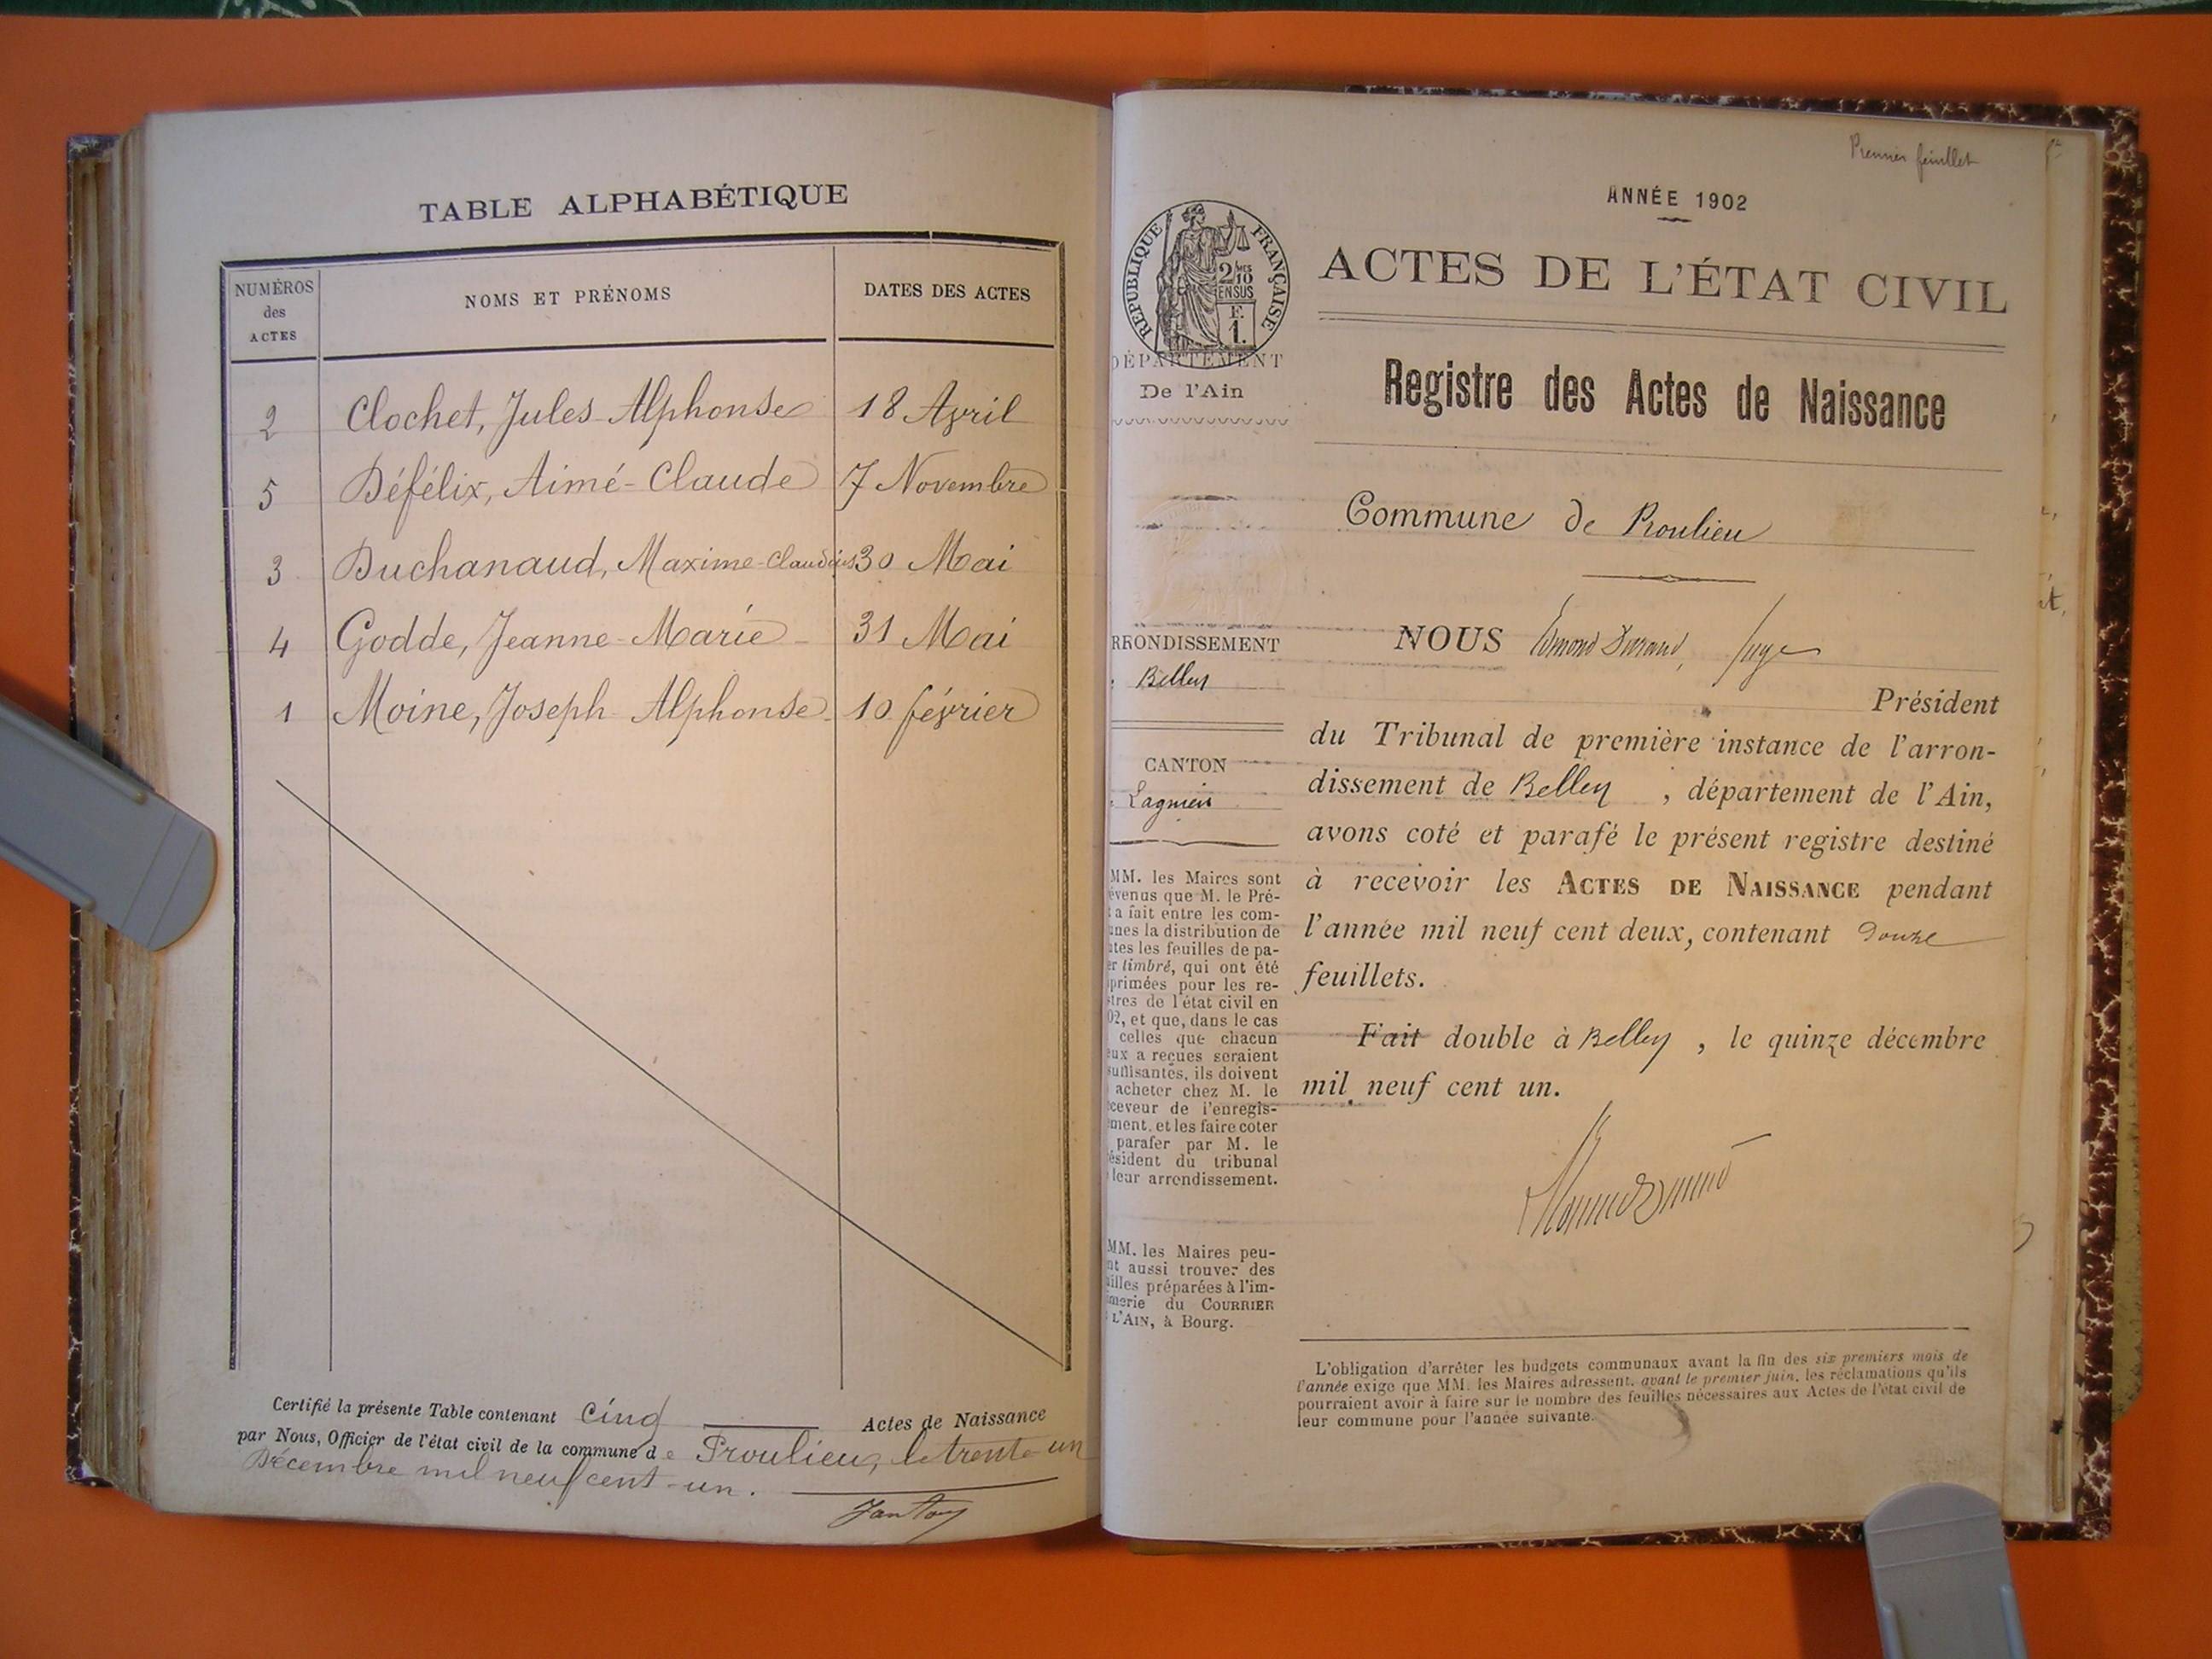 TABLE ALPHABÉTIQUE
NUMÉROS
des
ACTES
NOMS ET PRÉNOMS
DATES DES ACTES
2 Clochet, Jules-Alphonse 18 Avril
5 Défélix, Aimé-Claude 7 Novembre
3 Duchanaud, Maxime-Claudius 30 Mai
4 Godde, Jeanne-Marie 31 Mai
1 Moine, Joseph-Alphonse 10 février
Certifié la présente Table contenant Cinq Actes de Naissance
par Nous, Officier de l'état civil de la commune de Proulieu, le trente-un
Décembre mil neuf cent-un.
Premier feuillet
ANNÉE 1902
ACTES DE L'ÉTAT CIVIL
Registre des Actes de Naissance
RÉPUBLIQUE FRANÇAISE
2/MES
10
EN SUS
F.
1.
DÉPARTEMENT
De l'Ain
Commune de Proulieu
RRONDISSEMENT
Belley
CANTON
Lagnieu
NOUS Edmond Durand, Juge
Président
du Tribunal de première instance de l'arron-
dissement de Belley , département de l'Ain,
avons coté et parafé le présent registre destiné
à recevoir les ACTES DE NAISSANCE pendant
l'année mil neuf cent deux, contenant douze
feuillets.
Fait double à Belley , le quinze décembre
mil neuf cent un.
MM. les Maires sont
évenus que M. le Pré-
t a fait entre les com-
unes la distribution de
utes les feuilles de pa-
er timbré, qui ont été
primées pour les re-
stres de l'état civil en
02, et que, dans le cas
celles que chacun
eux a reçues seraient
suffisantes, ils doivent
acheter chez M. le
ceveur de l'enregis-
ement, et les faire coter
parafer par M. le
résident du tribunal
leur arrondissement.
MM. les Maires peu-
nt aussi trouver des
uilles préparées à l'im-
merie du COURRIER
L'AIN, à Bourg.
L'obligation d'arrêter les budgets communaux avant la fin des six premiers mois de
l'année exige que MM. les Maires adressent, avant le premier juin, les réclamations qu'ils
pourraient avoir à faire sur le nombre des feuilles nécessaires aux Actes de l'état civil de
leur commune pour l'année suivante.